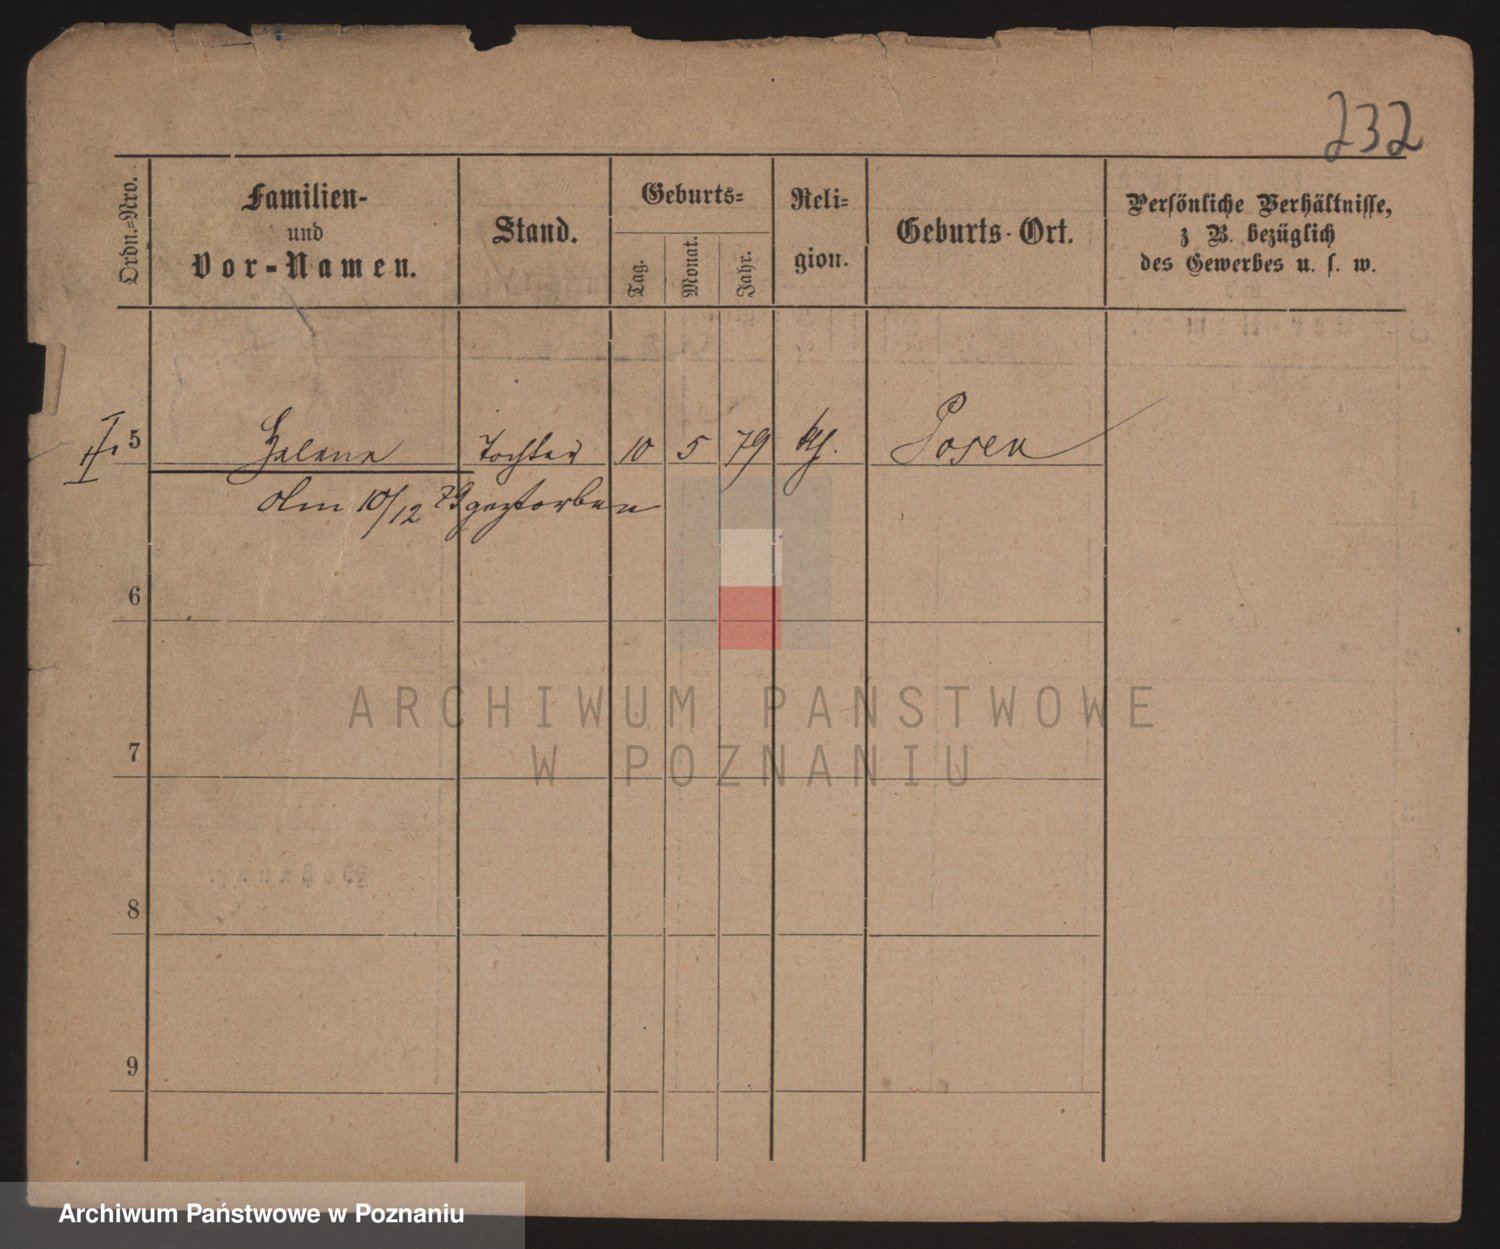 232
Ordn.=Nro.
Familien-
und
Vor-Namen.
Stand.
Geburts=
Tag.
Monat.
Jahr.
Reli=
gion.
Geburts-Ort.
Persönliche Verhältnisse,
z B. bezüglich
des Gewerbes u. s. w.
5 Helene Tochter 10 5 79 kth. Posen
Am 10/12 79 gestorben
6
7
8
9
ARCHIWUM PAŃSTWOWE
W POZNANIU
Archiwum Państwowe w Poznaniu